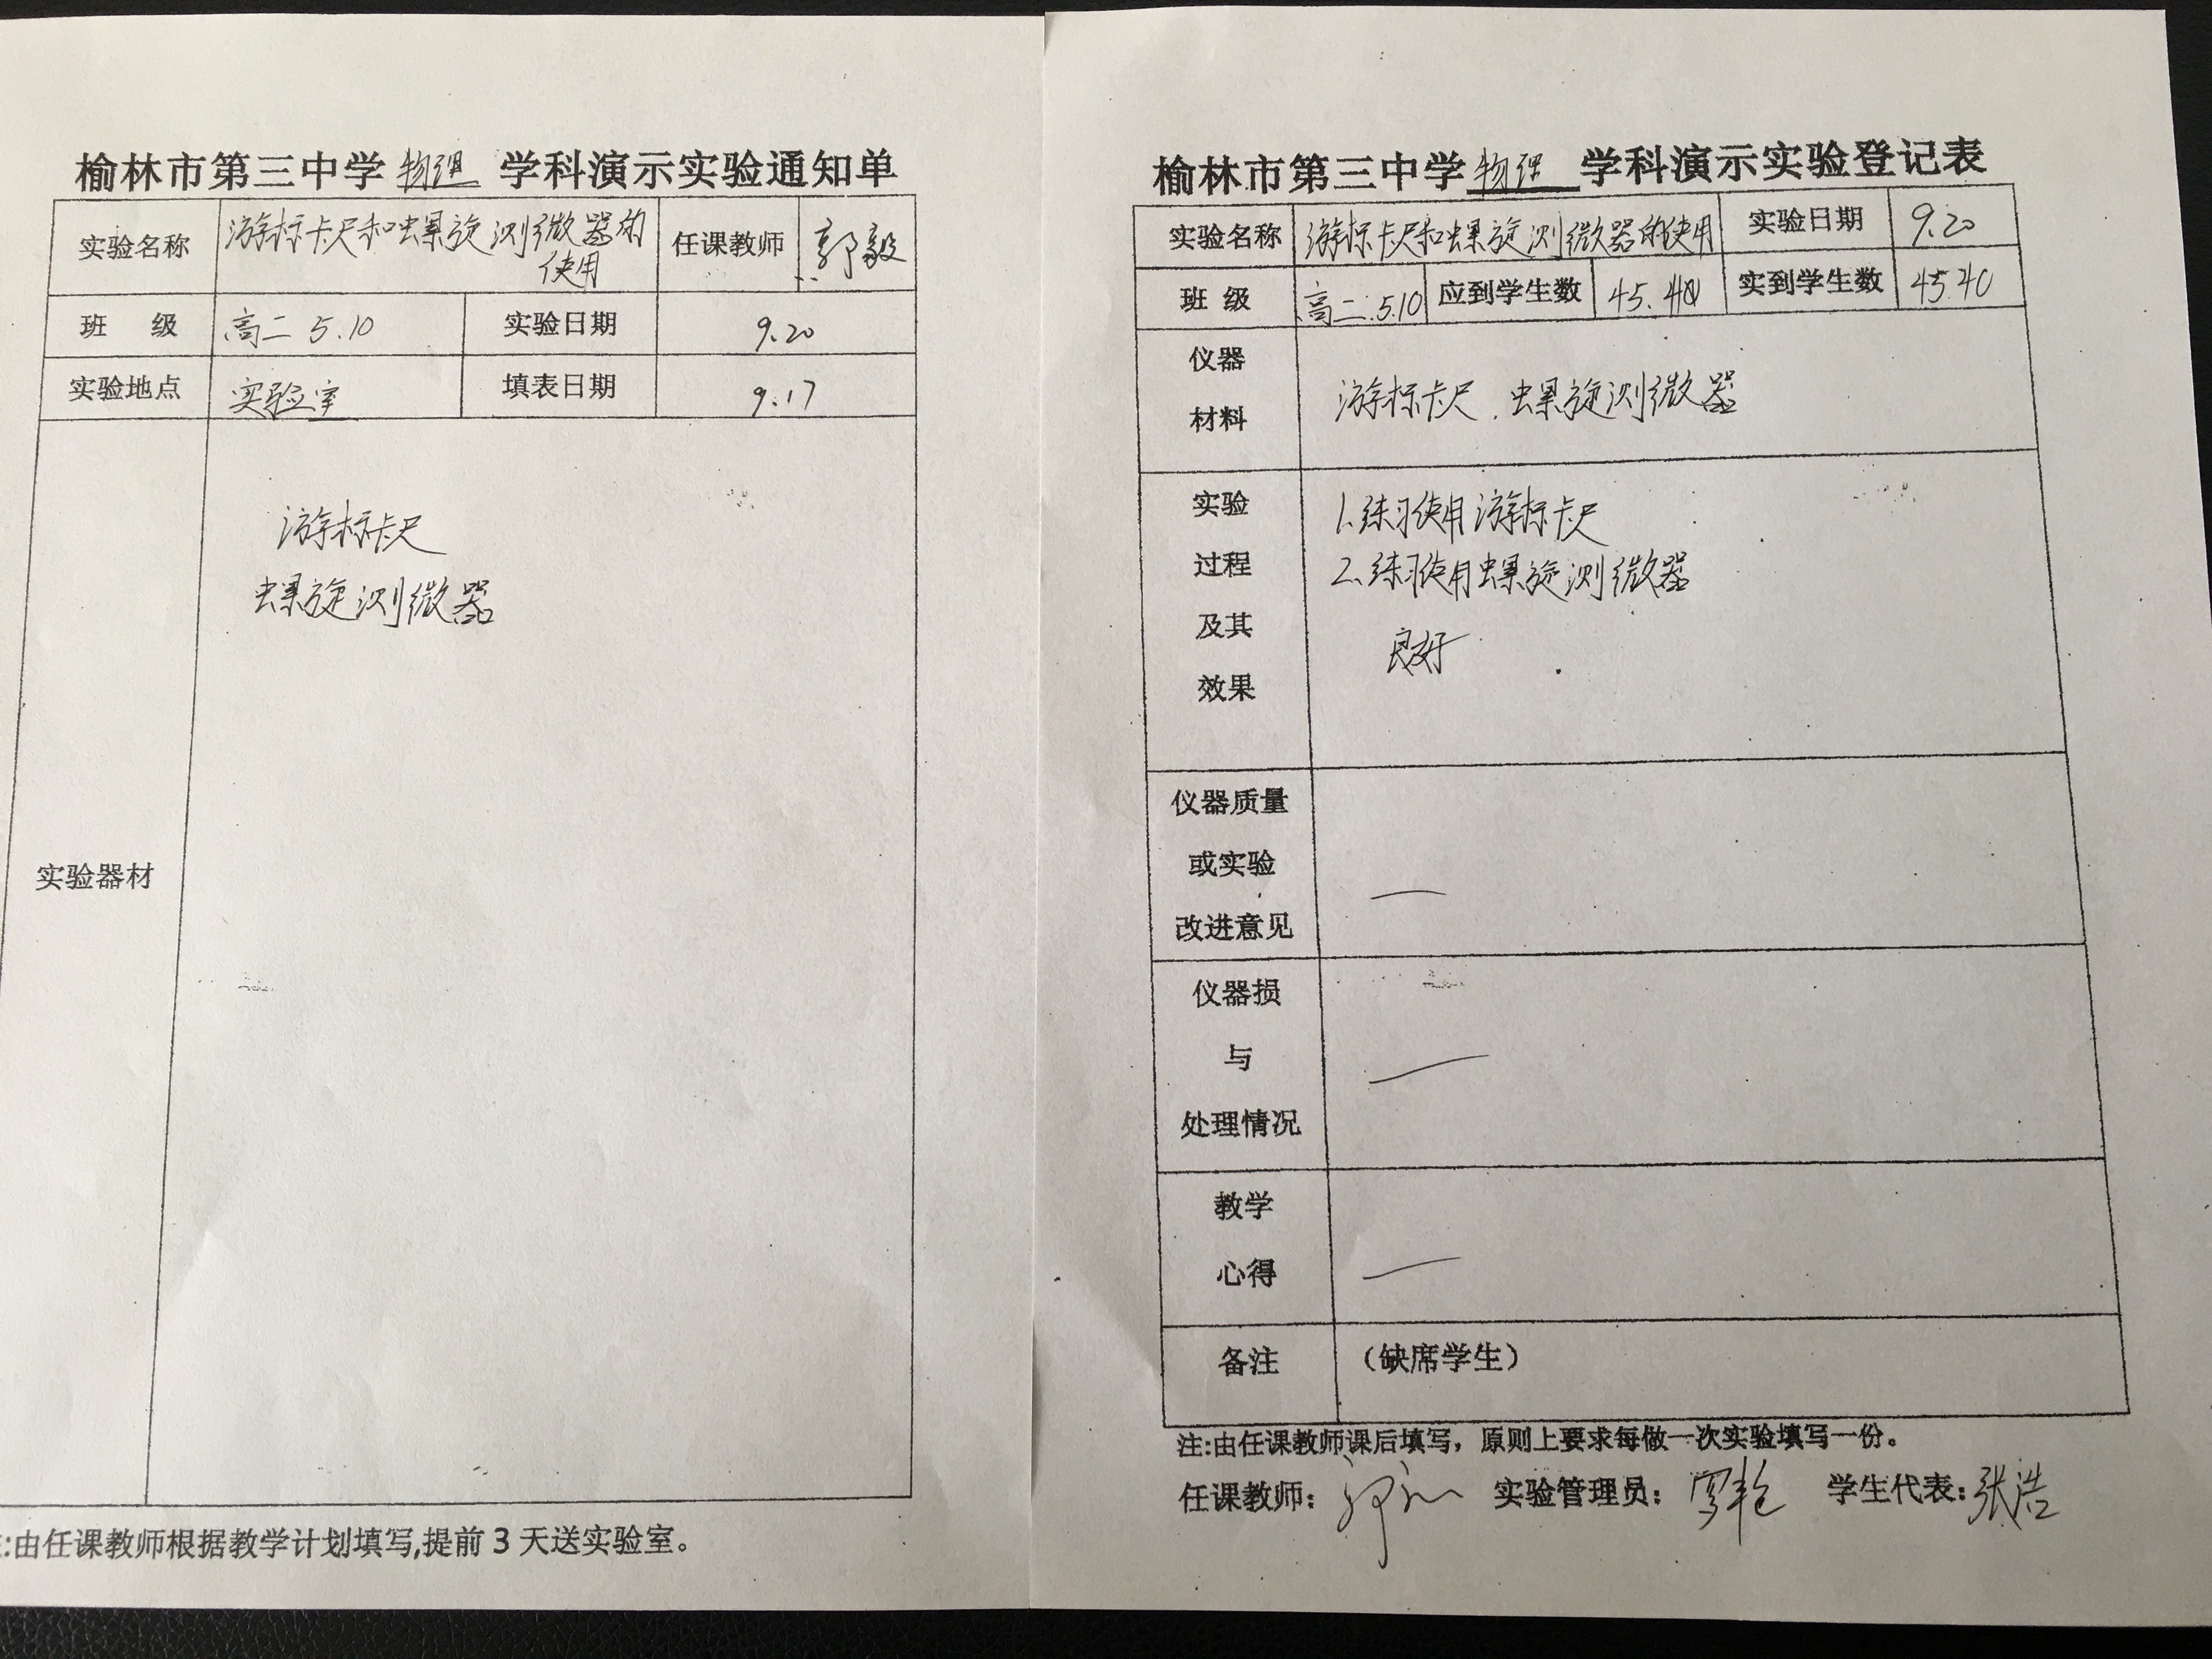 榆林市第三中学物理学科演示实验通知单
实验名称 游标卡尺和螺旋测微器的使用 任课教师 郭毅
班 级 高二 5.10 实验日期 9.20
实验地点 实验室 填表日期 9.17
实验器材
游标卡尺
螺旋测微器
:由任课教师根据教学计划填写,提前3天送实验室。
榆林市第三中学物理学科演示实验登记表
实验名称 游标卡尺和螺旋测微器的使用 实验日期 9.20
班 级 高二.5.10 应到学生数 45. 实到学生数 45.40
仪器
材料
游标卡尺. 螺旋测微器
实验
过程
及其
效果
1.练习使用游标卡尺
2.练习使用螺旋测微器
良好
仪器质量
或实验
改进意见
—
仪器损
与
处理情况
—
教学
心得
—
备注 (缺席学生)
注:由任课教师课后填写，原则上要求每做一次实验填写一份。
任课教师: 实验管理员: 学生代表:张浩